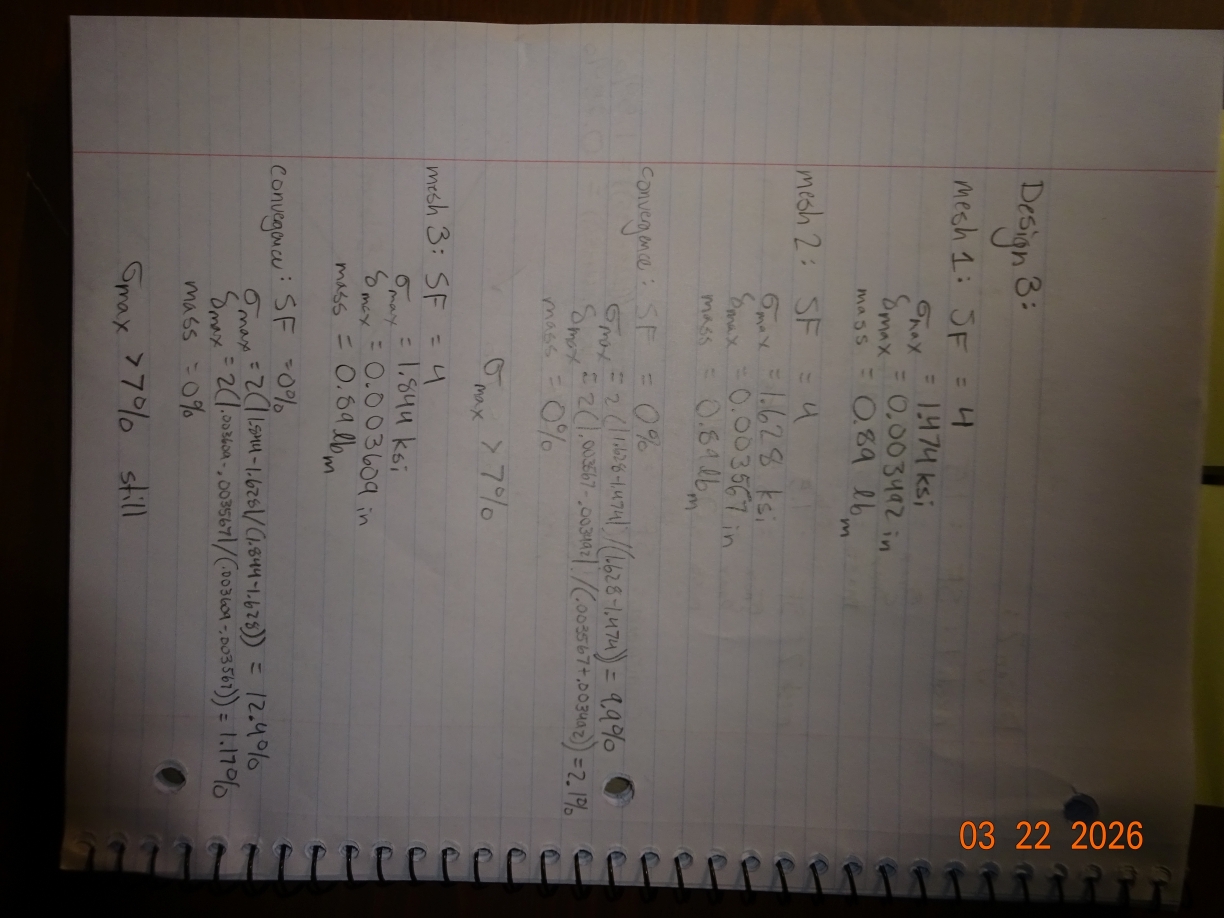 Design 3:
mesh 1: SF = 4
σmax = 1.474 ksi
δmax = 0.003492 in
mass = 0.89 lbm
mesh 2: SF = 4
σmax = 1.628 ksi
δmax = 0.003567 in
mass = 0.89 lbm
convergence: SF = 0%
σmax = 2(|1.628-1.474|/(1.628-1.474)) = 9.9%
δmax = 2(|.003567-.003492|/(.003567+.003492)) = 2.1%
mass = 0%
σmax > 7%
mesh 3: SF = 4
σmax = 1.844 ksi
δmax = 0.003609 in
mass = 0.89 lbm
convergence: SF = 0%
σmax = 2(|1.844-1.628|/(1.844-1.628)) = 12.4%
δmax = 2(|.003609-.003567|/(.003609-.003567)) = 1.17%
mass = 0%
σmax > 7% still
03 22 2026